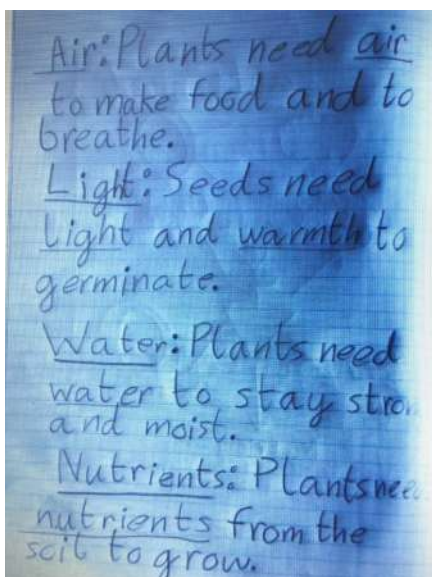 Air: Plants need air
to make food and to
breathe.
Light: Seeds need
Light and warmth to
germinate.
Water: Plants need
water to stay stro
and moist.
Nutrients: Plants nee
nutrients from the
soil to grow.